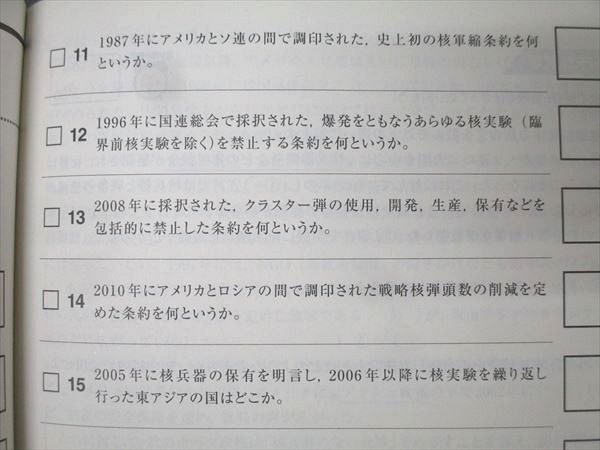 11 1987年にアメリカとソ連の間で調印された，史上初の核軍縮条約を何
というか。
12 1996年に国連総会で採択された，爆発をともなうあらゆる核実験（臨
界前核実験を除く）を禁止する条約を何というか。
13 2008年に採択された，クラスター弾の使用，開発，生産，保有などを
包括的に禁止した条約を何というか。
14 2010年にアメリカとロシアの間で調印された戦略核弾頭数の削減を定
めた条約を何というか。
15 2005年に核兵器の保有を明言し，2006年以降に核実験を繰り返し
行った東アジアの国はどこか。